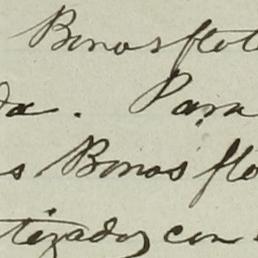 Bonos flot
da. Para
s Bonos flo
tizados con